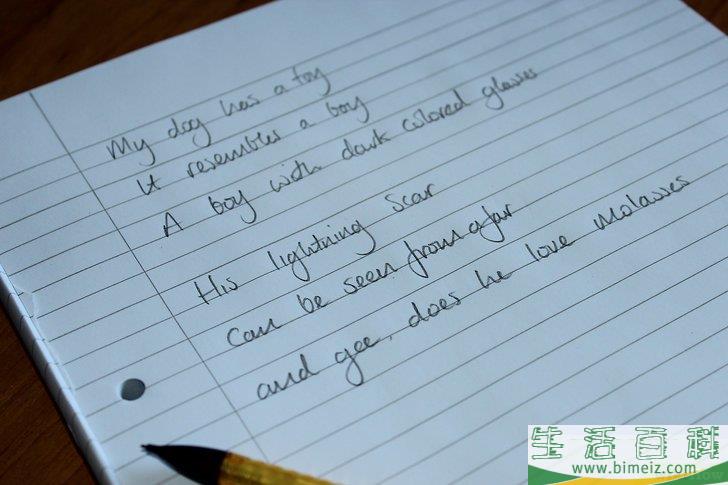 My dog has a toy
It resembles a boy
A boy with dark colored glasses
His lightning scar
can be seen from afar
and gee, does he love molasses
生活百科
www.bimeiz.com